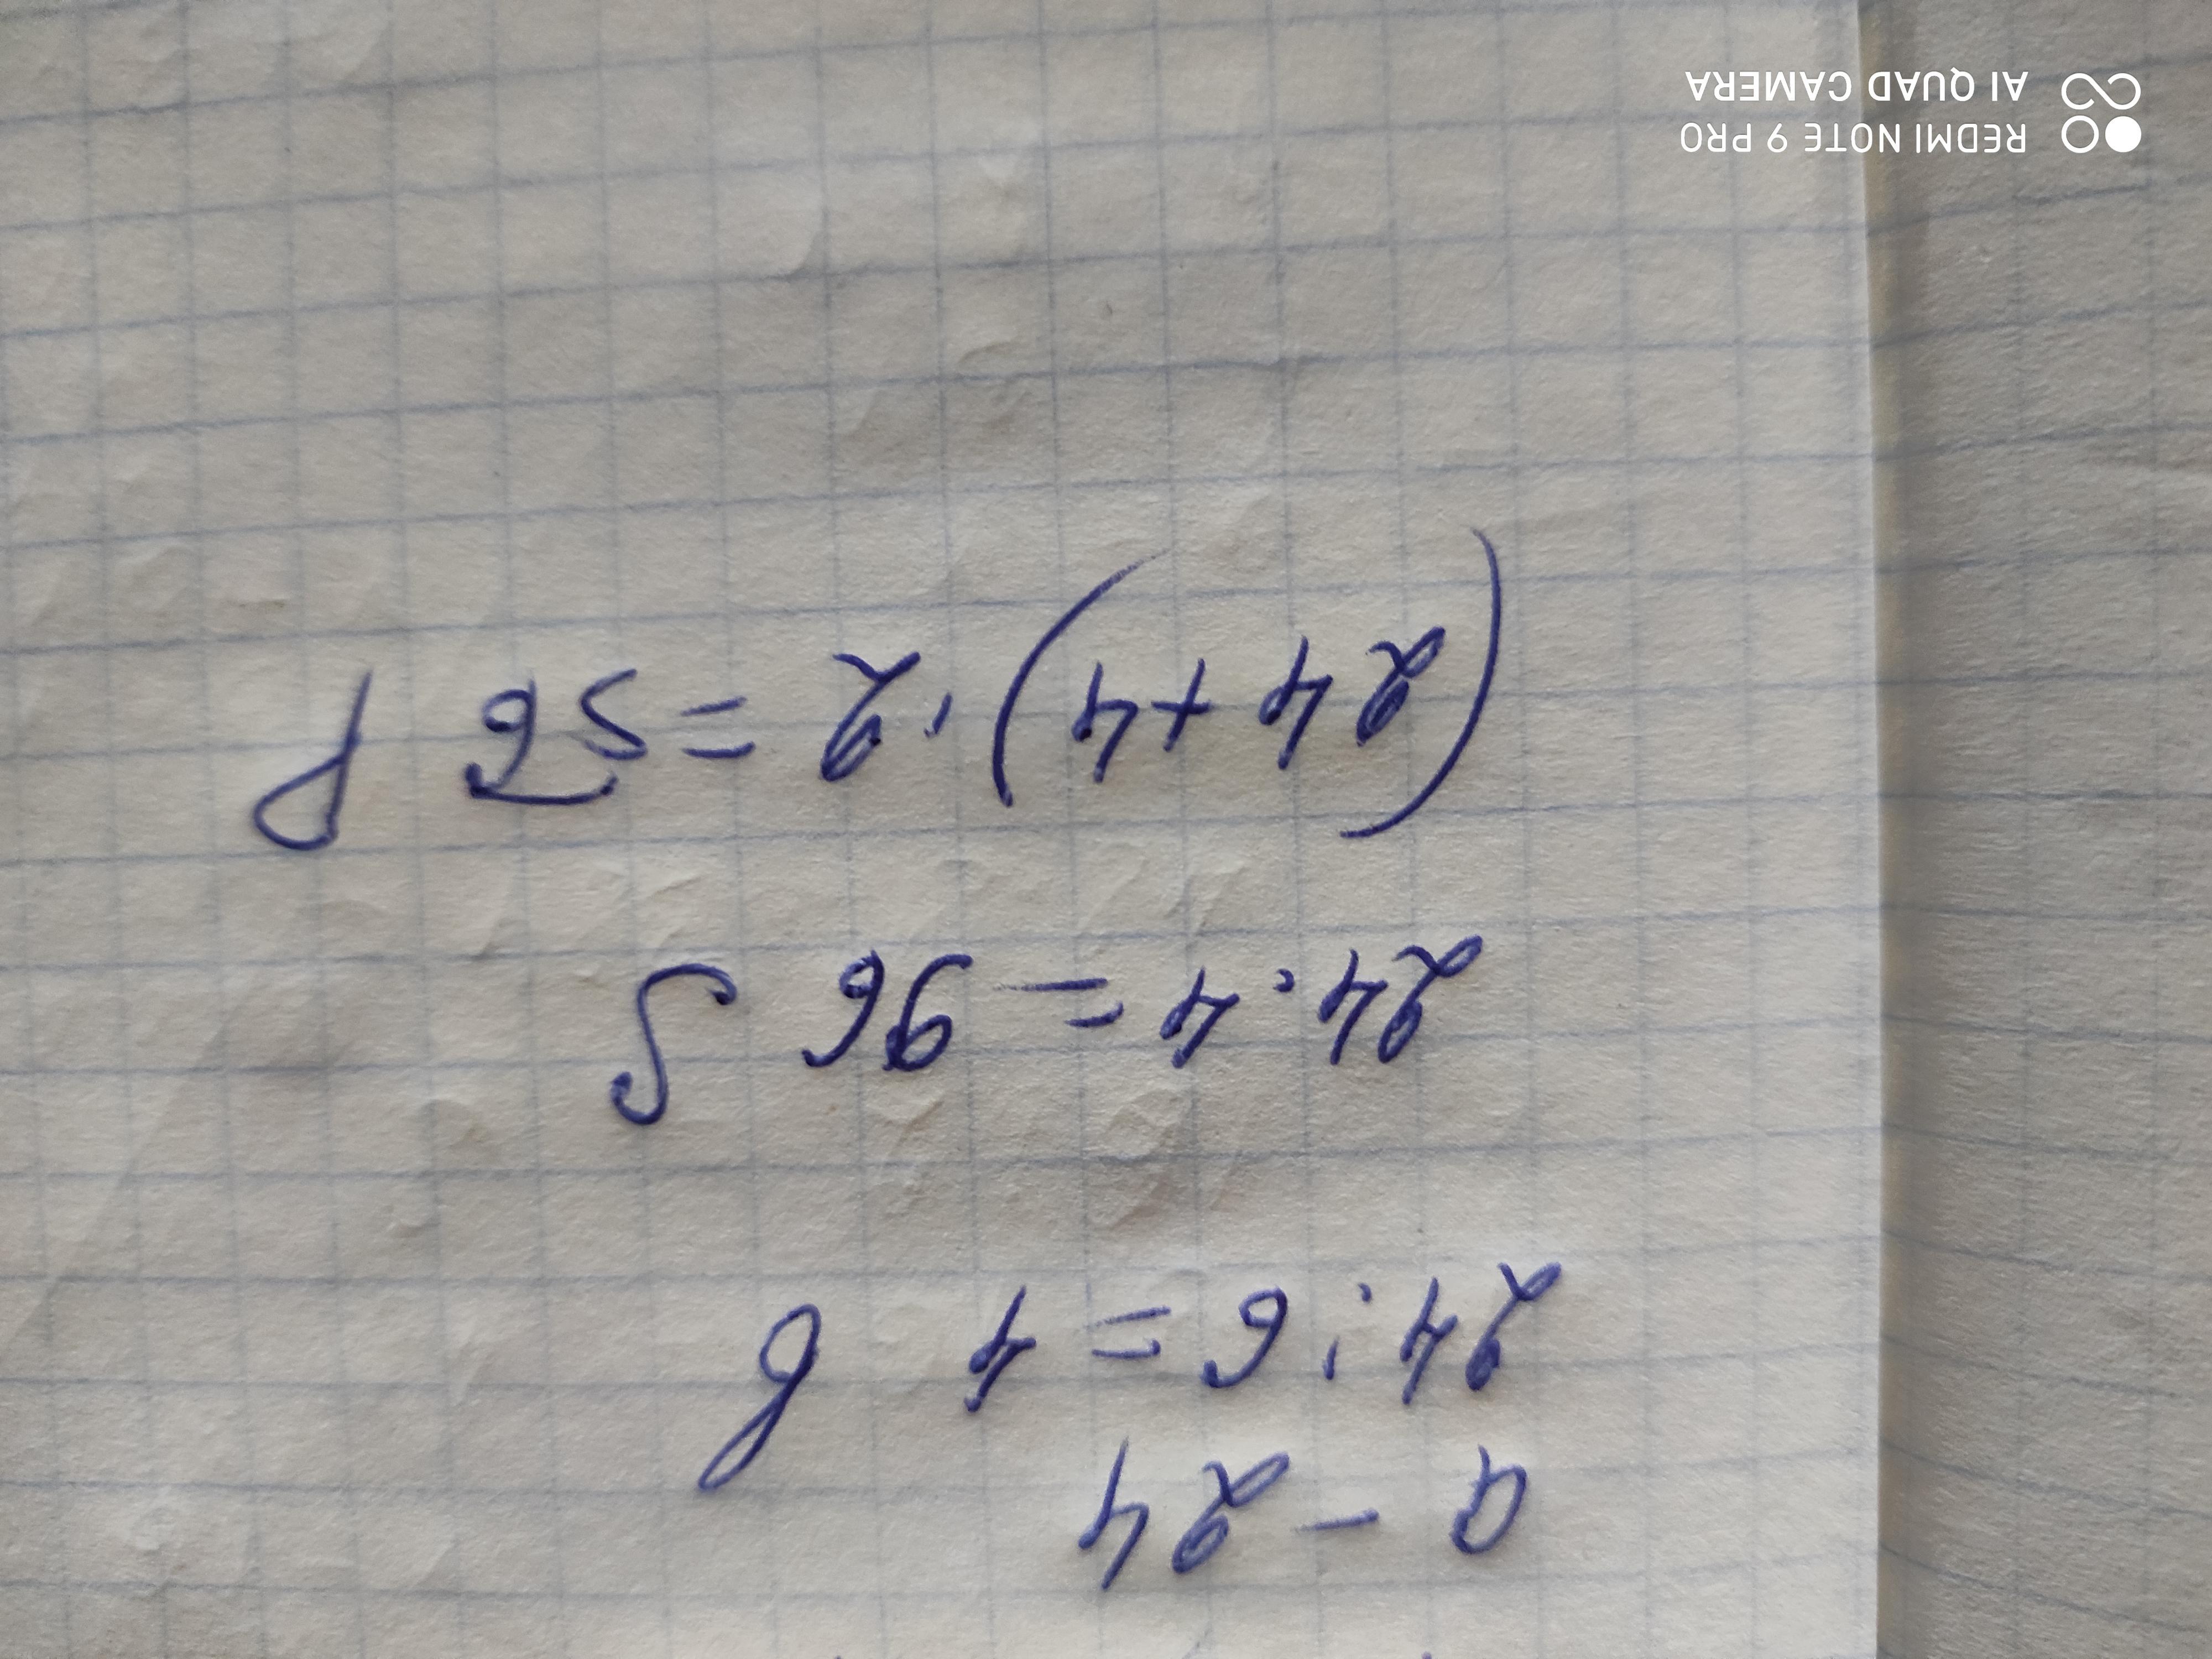 a - 24
24 : 6 = 4 b
24 · 4 = 96 S
(24 + 4) · 2 = 56 P
REDMI NOTE 9 PRO
AI QUAD CAMERA